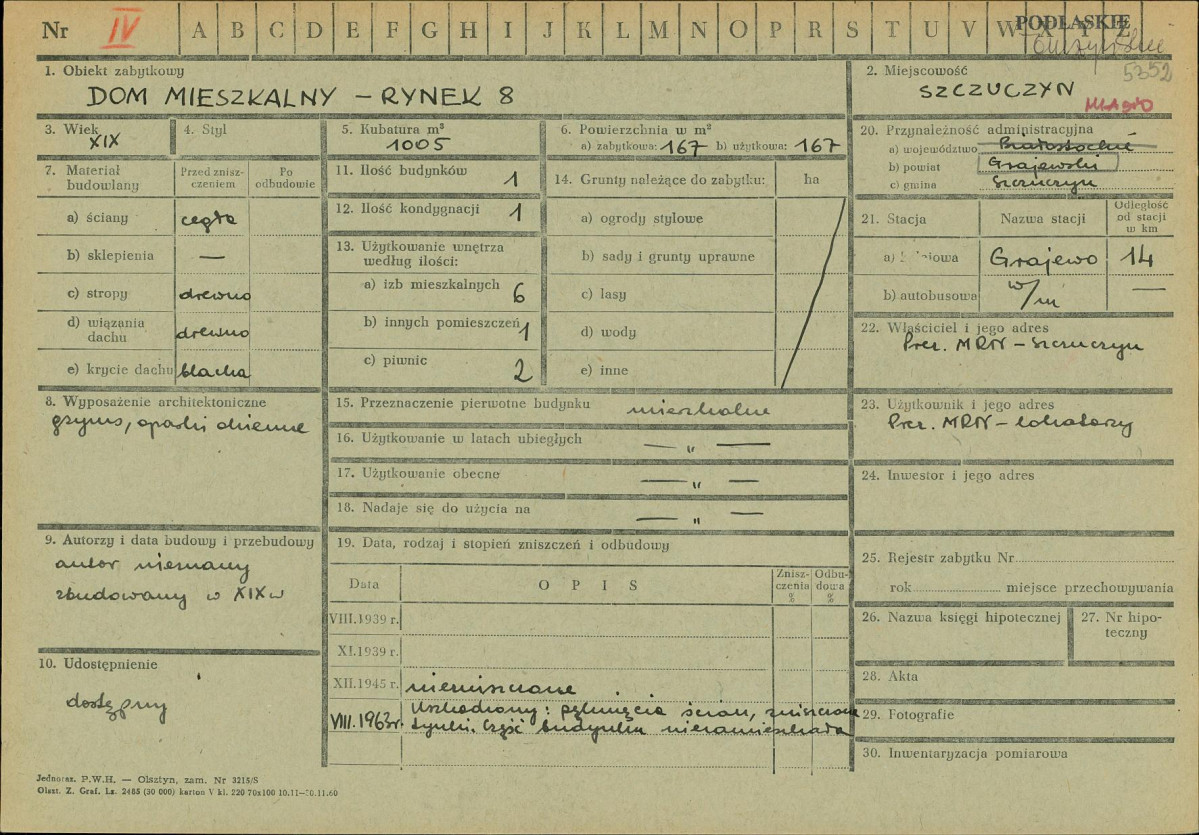 Nr IV A B C D E F G H I J K L M N O P R S T U V W X Y Z
PODLASKIE
5352
1. Obiekt zabytkowy
DOM MIESZKALNY – RYNEK 8
2. Miejscowość
SZCZUCZYN
MIASTO
3. Wiek
XIX
4. Styl
5. Kubatura m³
1005
6. Powierzchnia w m²
a) zabytkowa: 167 b) użytkowa: 167
7. Materiał budowlany
Przed zniszczeniem
Po odbudowie
a) ściany cegła
b) sklepienia —
c) stropy drewno
d) wiązania dachu drewno
e) krycie dachu blacha
8. Wyposażenie architektoniczne
gzyms, opaski okienne
9. Autorzy i data budowy i przebudowy
autor nieznany
zbudowany w XIX w
10. Udostępnienie
dostępny
11. Ilość budynków 1
12. Ilość kondygnacji 1
13. Użytkowanie wnętrza
według ilości:
a) izb mieszkalnych 6
b) innych pomieszczeń 1
c) piwnic 2
14. Grunty należące do zabytku: ha
a) ogrody stylowe
b) sady i grunty uprawne
c) lasy
d) wody
e) inne
15. Przeznaczenie pierwotne budynku mieszkalne
16. Użytkowanie w latach ubiegłych — „ —
17. Użytkowanie obecne — „ —
18. Nadaje się do użycia na — „ —
19. Data, rodzaj i stopień zniszczeń i odbudowy
Data O P I S Zniszczenia % Odbudowa %
VIII.1939 r.
XI.1939 r.
XII.1945 r. niezniszczone
VIII.1963r. Uszkodzony: pęknięcia ścian, zniszczone
tynki. Część budynku niezamieszkała
20. Przynależność administracyjna
a) województwo Białostockie
b) powiat Grajewski
c) gmina Szczuczyn
21. Stacja Nazwa stacji Odległość od stacji w km
Grajewo 14
b) autobusowa w/m —
22. Właściciel i jego adres
Prez. MRN – Szczuczyn
23. Użytkownik i jego adres
Prez. MRN – lokatorzy
24. Inwestor i jego adres
25. Rejestr zabytku Nr
rok miejsce przechowywania
26. Nazwa księgi hipotecznej
27. Nr hipoteczny
28. Akta
29. Fotografie
30. Inwentaryzacja pomiarowa
Jednoraz. P.W.H. — Olsztyn, zam. Nr 3215/S
Olszt. Z. Graf. Lz. 2485 (30 000) karton V kl. 220 70x100 10.11—30.11.60